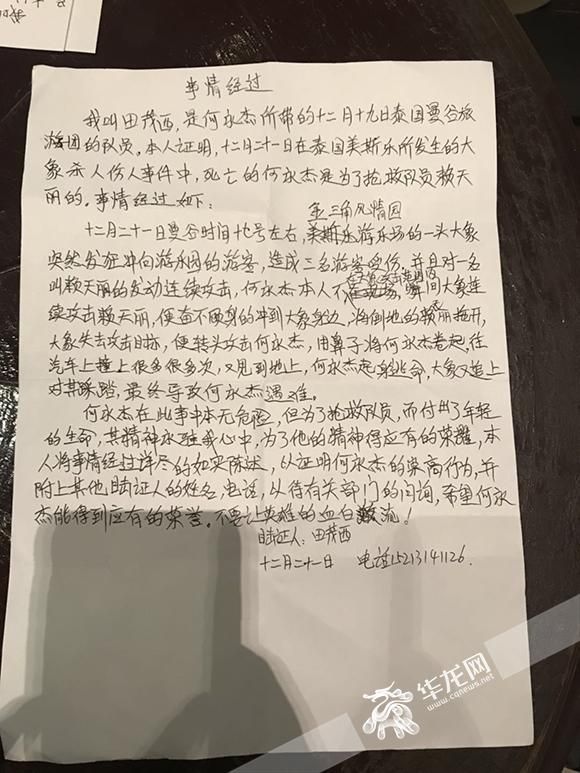 事情经过
我叫田茂西，是何永杰所带的十二月十九日泰国曼谷旅
游团的队员。本人证明，十二月二十一日在泰国美斯乐所发生的大
象杀人伤人事件中，死亡的何永杰是为了抢救队员赖天
丽的。事情经过如下：
金三角风情园
十二月二十一日曼谷时间 左右，美斯乐游乐场的一头大象
突然发狂冲向游乐园的游客，造成三名游客 伤，并且对一名
叫赖天丽的发动连续攻击，何永杰本人不在现场，瞬间大象连
续攻击赖天丽，便奋不顾身的冲到大象身边，将倒地的赖天丽拖开，
大象失去攻击目标，便转头攻击何永杰，用鼻子将何永杰卷起，往
汽车上撞上很多很多次，又 到地上，何永杰起身逃命，大象又追上
对其踩踏，最终导致何永杰遇难。
何永杰在此事中本无危险，但为了抢救队员，而付出了年轻
的生命，其精神永 我心中，为了他的精神得应有的荣耀，本
人将事情经过详尽的如实陈述，以证明何永杰的崇高行为，并
附上其他 证人的姓名，电话，以待有关部门的问询，希望何永
杰能得到应有的荣誉。不要让英雄的血白流！
证人：田茂西
十二月二十一日 电话15213141126.
华龙网
www.cqnews.net